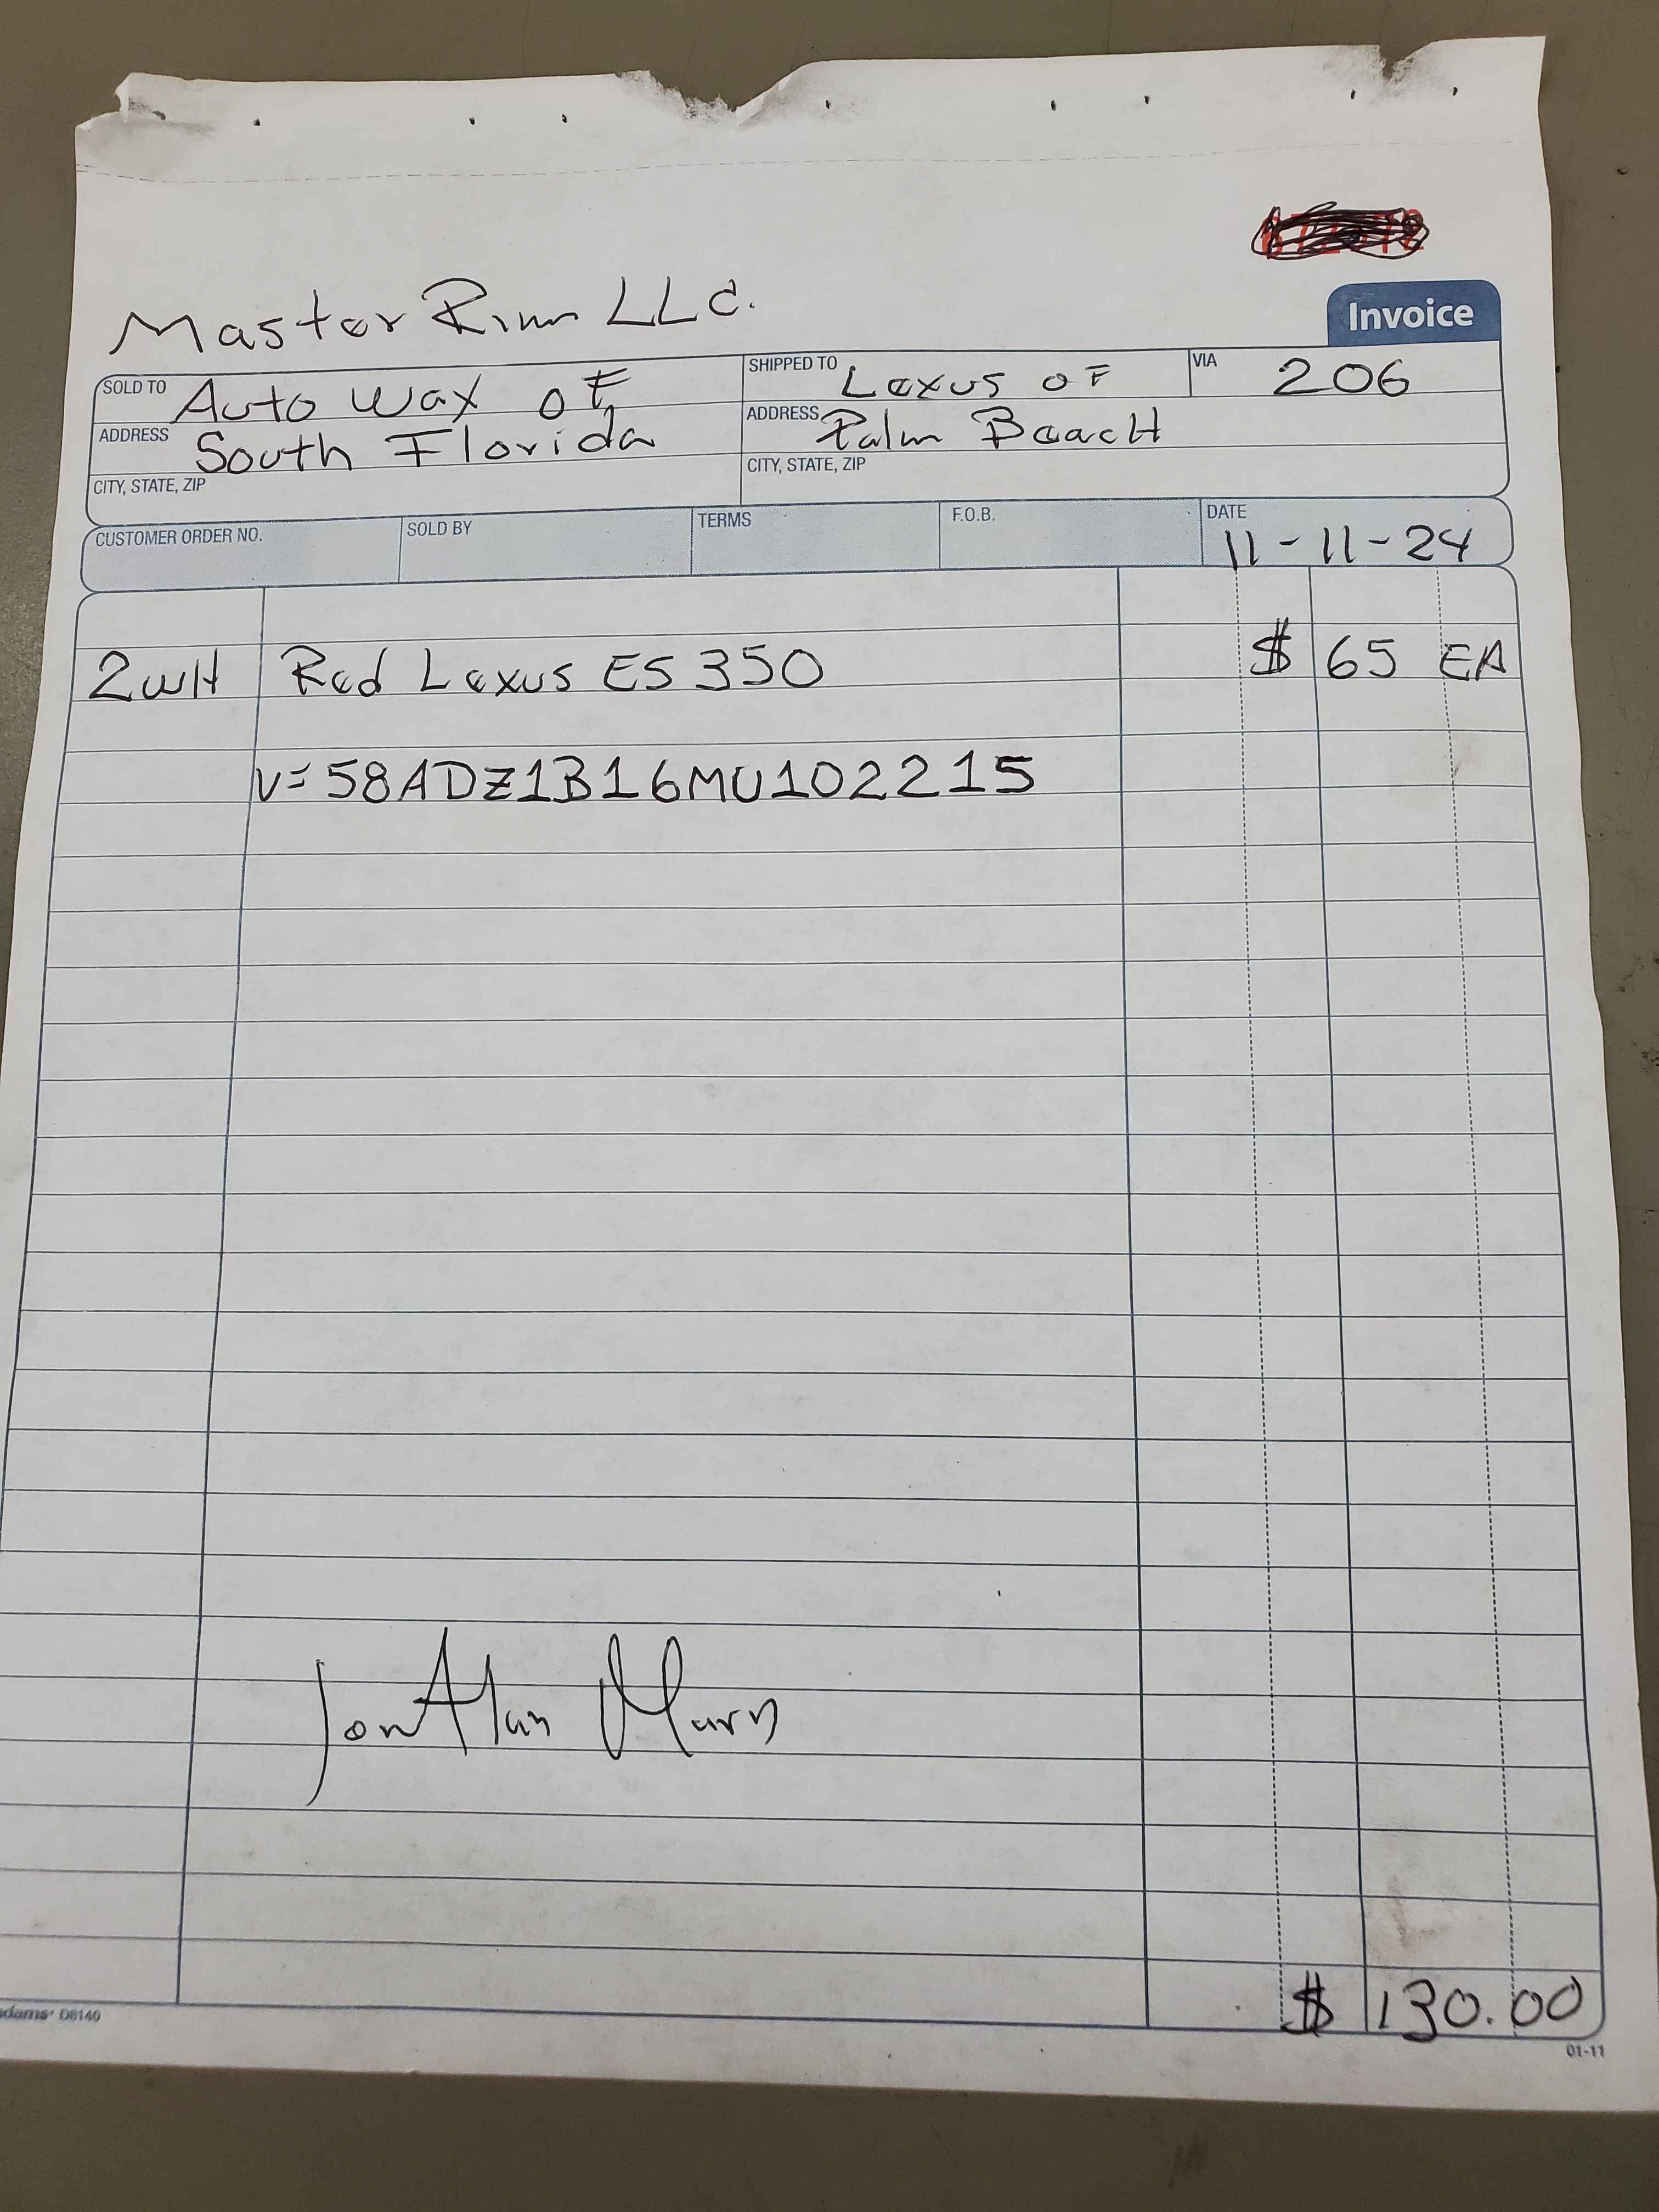 Master Rim LLC.
Invoice
SOLD TO Auto Wax of
SHIPPED TO Lexus of
VIA 206
ADDRESS South Florida
ADDRESS Palm BeacH
CITY, STATE, ZIP
CITY, STATE, ZIP
CUSTOMER ORDER NO.
SOLD BY
TERMS
F.O.B.
DATE 11-11-24
2wH Red Lexus ES 350 $ 65 EA
V=58ADZ1B16MU102215
$ 130.00
D8140
01-11